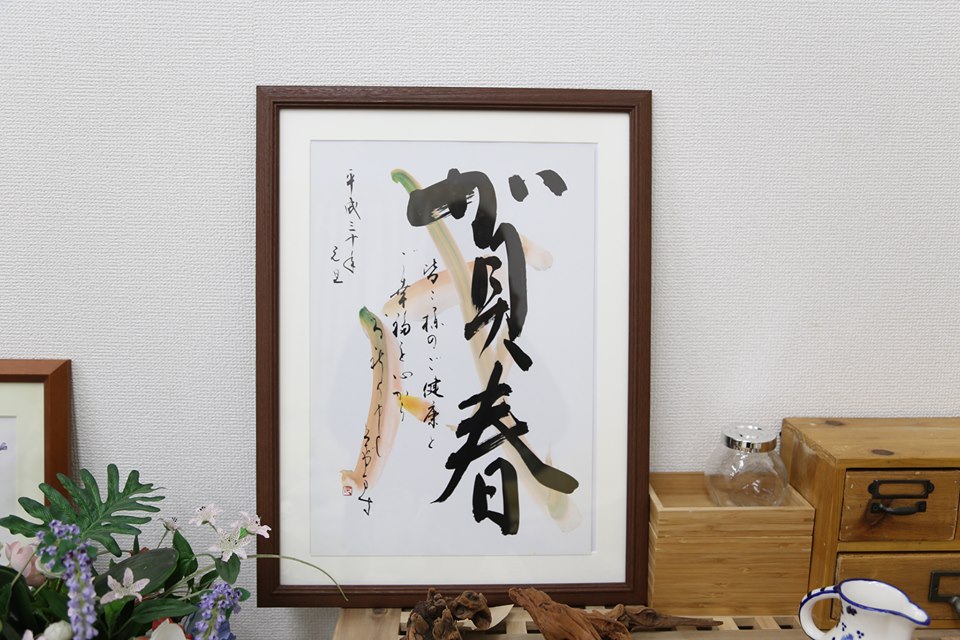 賀春
皆々様のご健康と
ご幸福を心から
お祈り申し上げます
平成三十年
元旦